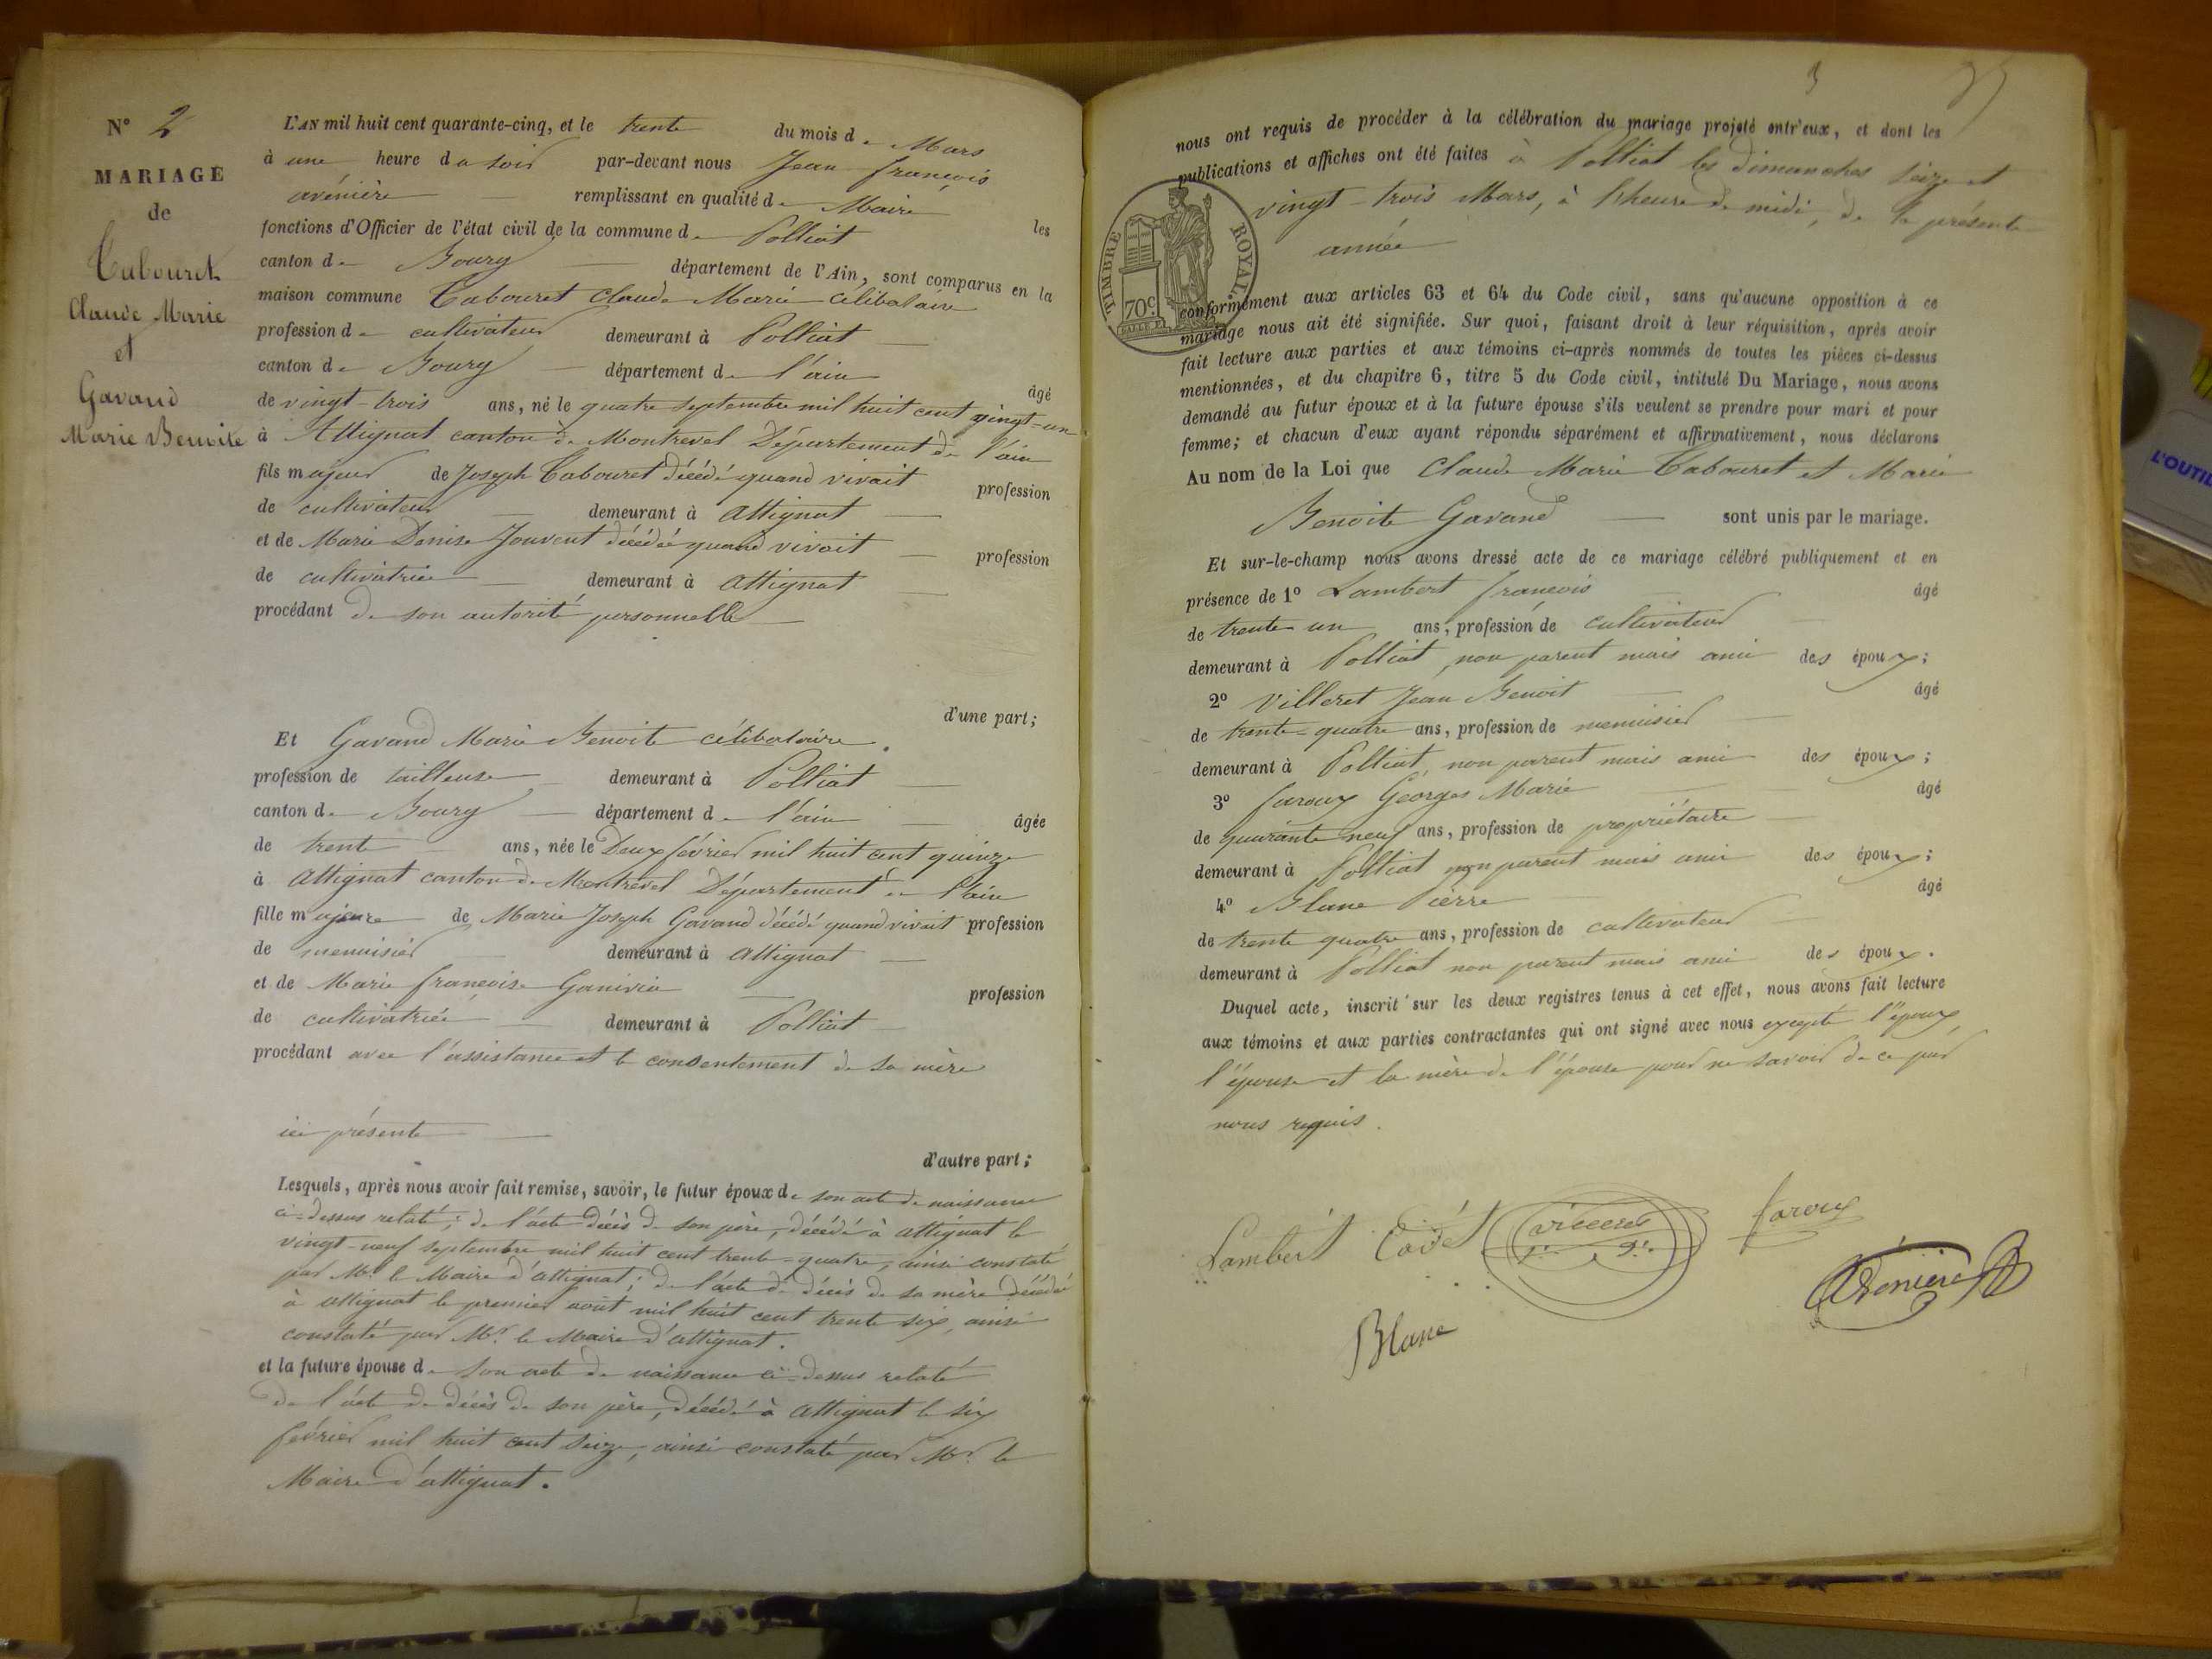 N° 2
MARIAGE
de
Tabouret
Claude Marie
et
Gavand
Marie Benoite
L'AN mil huit cent quarante-cinq, et le trente du mois de Mars
à une heure du soir par-devant nous Jean françois
avénière remplissant en qualité de Maire les
fonctions d'Officier de l'état civil de la commune de Polliat
canton de Bourg département de l'Ain, sont comparus en la
maison commune Tabouret Claude Marie célibataire
profession de cultivateur demeurant à Polliat
canton de Bourg département de l'ain âgé
de vingt-trois ans, né le quatre septembre mil huit cent vingt-un
à Attignat canton de Montrevel Département de l'ain
fils majeur de Joseph Tabouret décédé quand vivait profession
de cultivateur demeurant à Attignat
et de Marie Denise Jouvent décédée quand vivait profession
de cultivatrice demeurant à Attignat
procédant de son autorité personnelle
d'une part;
Et Gavand Marie Benoite célibataire
profession de tailleuse demeurant à Polliat
canton de Bourg département de l'ain âgée
de trente ans, née le Deux février mil huit cent quinze
à Attignat canton de Montrevel Département de l'ain
fille majeure de Marie Joseph Gavand décédé quand vivait profession
de menuisier demeurant à Attignat
et de Marie françoise profession
de cultivatrice demeurant à Polliat
procédant avec l'assistance et le consentement de sa mère
ici présente
d'autre part;
Lesquels, après nous avoir fait remise, savoir, le futur époux de son acte de naissance
ci-dessus relaté; de l'acte décès de son père, décédé à Attignat le
vingt-neuf septembre mil huit cent trente-quatre, ainsi constaté
par Mr. le Maire d'attignat; de l'acte de décès de sa mère décédée
à attignat le premier août mil huit cent trente six, ainsi
constaté par Mr. le Maire d'attignat.
et la future épouse de son acte de naissance ci-dessus relaté
de l'acte de décès de son père, décédé à Attignat le six
février mil huit cent seize, ainsi constaté par Mr. le
Maire d'attignat.
3
nous ont requis de procéder à la célébration du mariage projeté entr'eux, et dont les
publications et affiches ont été faites à Polliat les dimanches seize et
vingt-trois Mars, à l'heure de midi, de la présente
année
TIMBRE ROYAL
70c
conformément aux articles 63 et 64 du Code civil, sans qu'aucune opposition à ce
mariage nous ait été signifiée. Sur quoi, faisant droit à leur réquisition, après avoir
fait lecture aux parties et aux témoins ci-après nommés de toutes les pièces ci-dessus
mentionnées, et du chapitre 6, titre 5 du Code civil, intitulé Du Mariage, nous avons
demandé au futur époux et à la future épouse s'ils veulent se prendre pour mari et pour
femme; et chacun d'eux ayant répondu séparément et affirmativement, nous déclarons
Au nom de la Loi que Claude Marie Tabouret et Marie
Benoite Gavand sont unis par le mariage.
Et sur-le-champ nous avons dressé acte de ce mariage célébré publiquement et en
présence de 1° Lambert françois âgé
de trente un ans, profession de cultivateur
demeurant à Polliat, non parent mais ami des époux;
2° Villeret Jean Benoit âgé
de trente-quatre ans, profession de menuisier
demeurant à Polliat, non parent mais ami des époux;
3° faroux Georges Marie âgé
de quarante neuf ans, profession de propriétaire
demeurant à Polliat non parent mais ami des époux;
4° Blanc Pierre âgé
de trente quatre ans, profession de cultivateur
demeurant à Polliat non parent mais ami des époux.
Duquel acte, inscrit sur les deux registres tenus à cet effet, nous avons fait lecture
aux témoins et aux parties contractantes qui ont signé avec nous excepté l'époux,
l'épouse et la mère de l'épouse pour ne savoir de ce par
nous requis.
Lambert Cadet
faroux
Blanc
Avénière
L'OUTIL